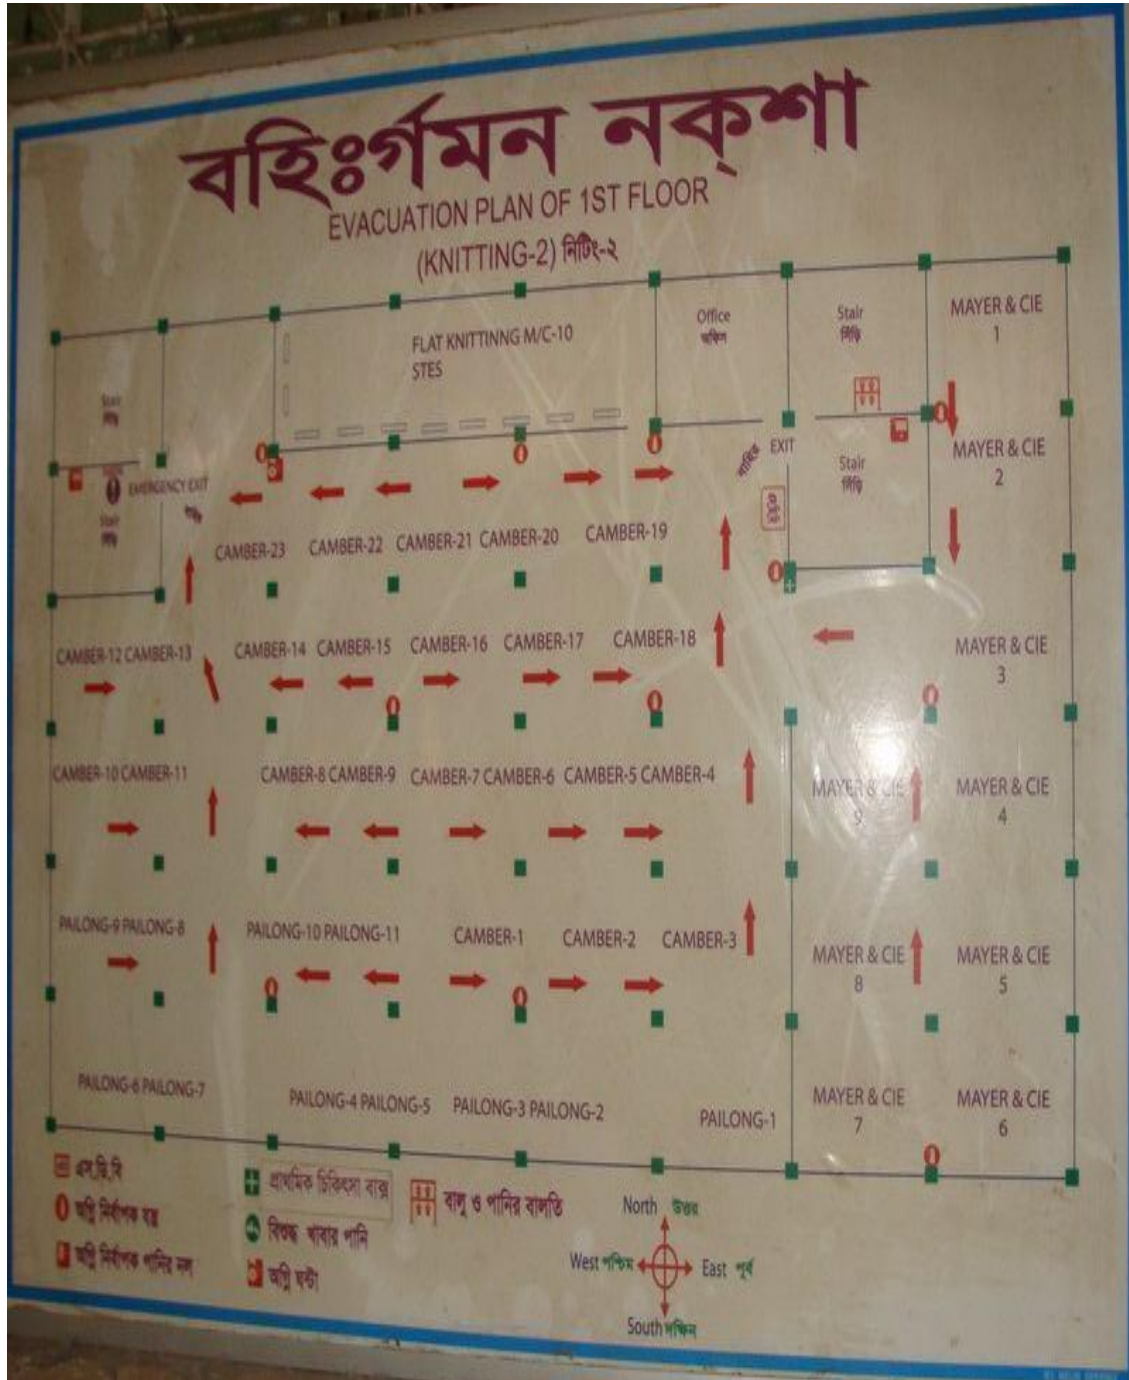 বহিঃর্গমন নক্শা
EVACUATION PLAN OF 1ST FLOOR
(KNITTING-2) নিটিং-২
FLAT KNITTINNG M/C-10
STES
Office
অফিস
Stair
সিঁড়ি
MAYER & CIE
1
Stair
সিঁড়ি
EXIT
Stair
সিঁড়ি
MAYER & CIE
2
EMERGENCY EXIT
Stair
সিঁড়ি
CAMBER-23 CAMBER-22 CAMBER-21 CAMBER-20 CAMBER-19
CAMBER-12 CAMBER-13 CAMBER-14 CAMBER-15 CAMBER-16 CAMBER-17 CAMBER-18
MAYER & CIE
3
CAMBER-10 CAMBER-11 CAMBER-8 CAMBER-9 CAMBER-7 CAMBER-6 CAMBER-5 CAMBER-4
MAYER & CIE
9
MAYER & CIE
4
PAILONG-9 PAILONG-8 PAILONG-10 PAILONG-11 CAMBER-1 CAMBER-2 CAMBER-3
MAYER & CIE
8
MAYER & CIE
5
PAILONG-6 PAILONG-7 PAILONG-4 PAILONG-5 PAILONG-3 PAILONG-2 PAILONG-1
MAYER & CIE
7
MAYER & CIE
6
এস,ডি,বি
অগ্নি নির্বাপক যন্ত্র
অগ্নি নির্বাপক পানির নল
প্রাথমিক চিকিৎসা বাক্স
বিশুদ্ধ খাবার পানি
অগ্নি ঘন্টা
বালু ও পানির বালতি
North উত্তর
West পশ্চিম
East পূর্ব
South দক্ষিন